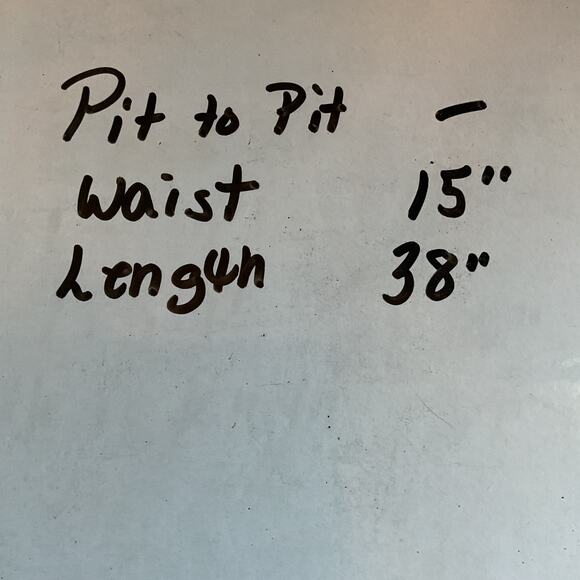 Pit to Pit -
Waist 15"
Length 38"